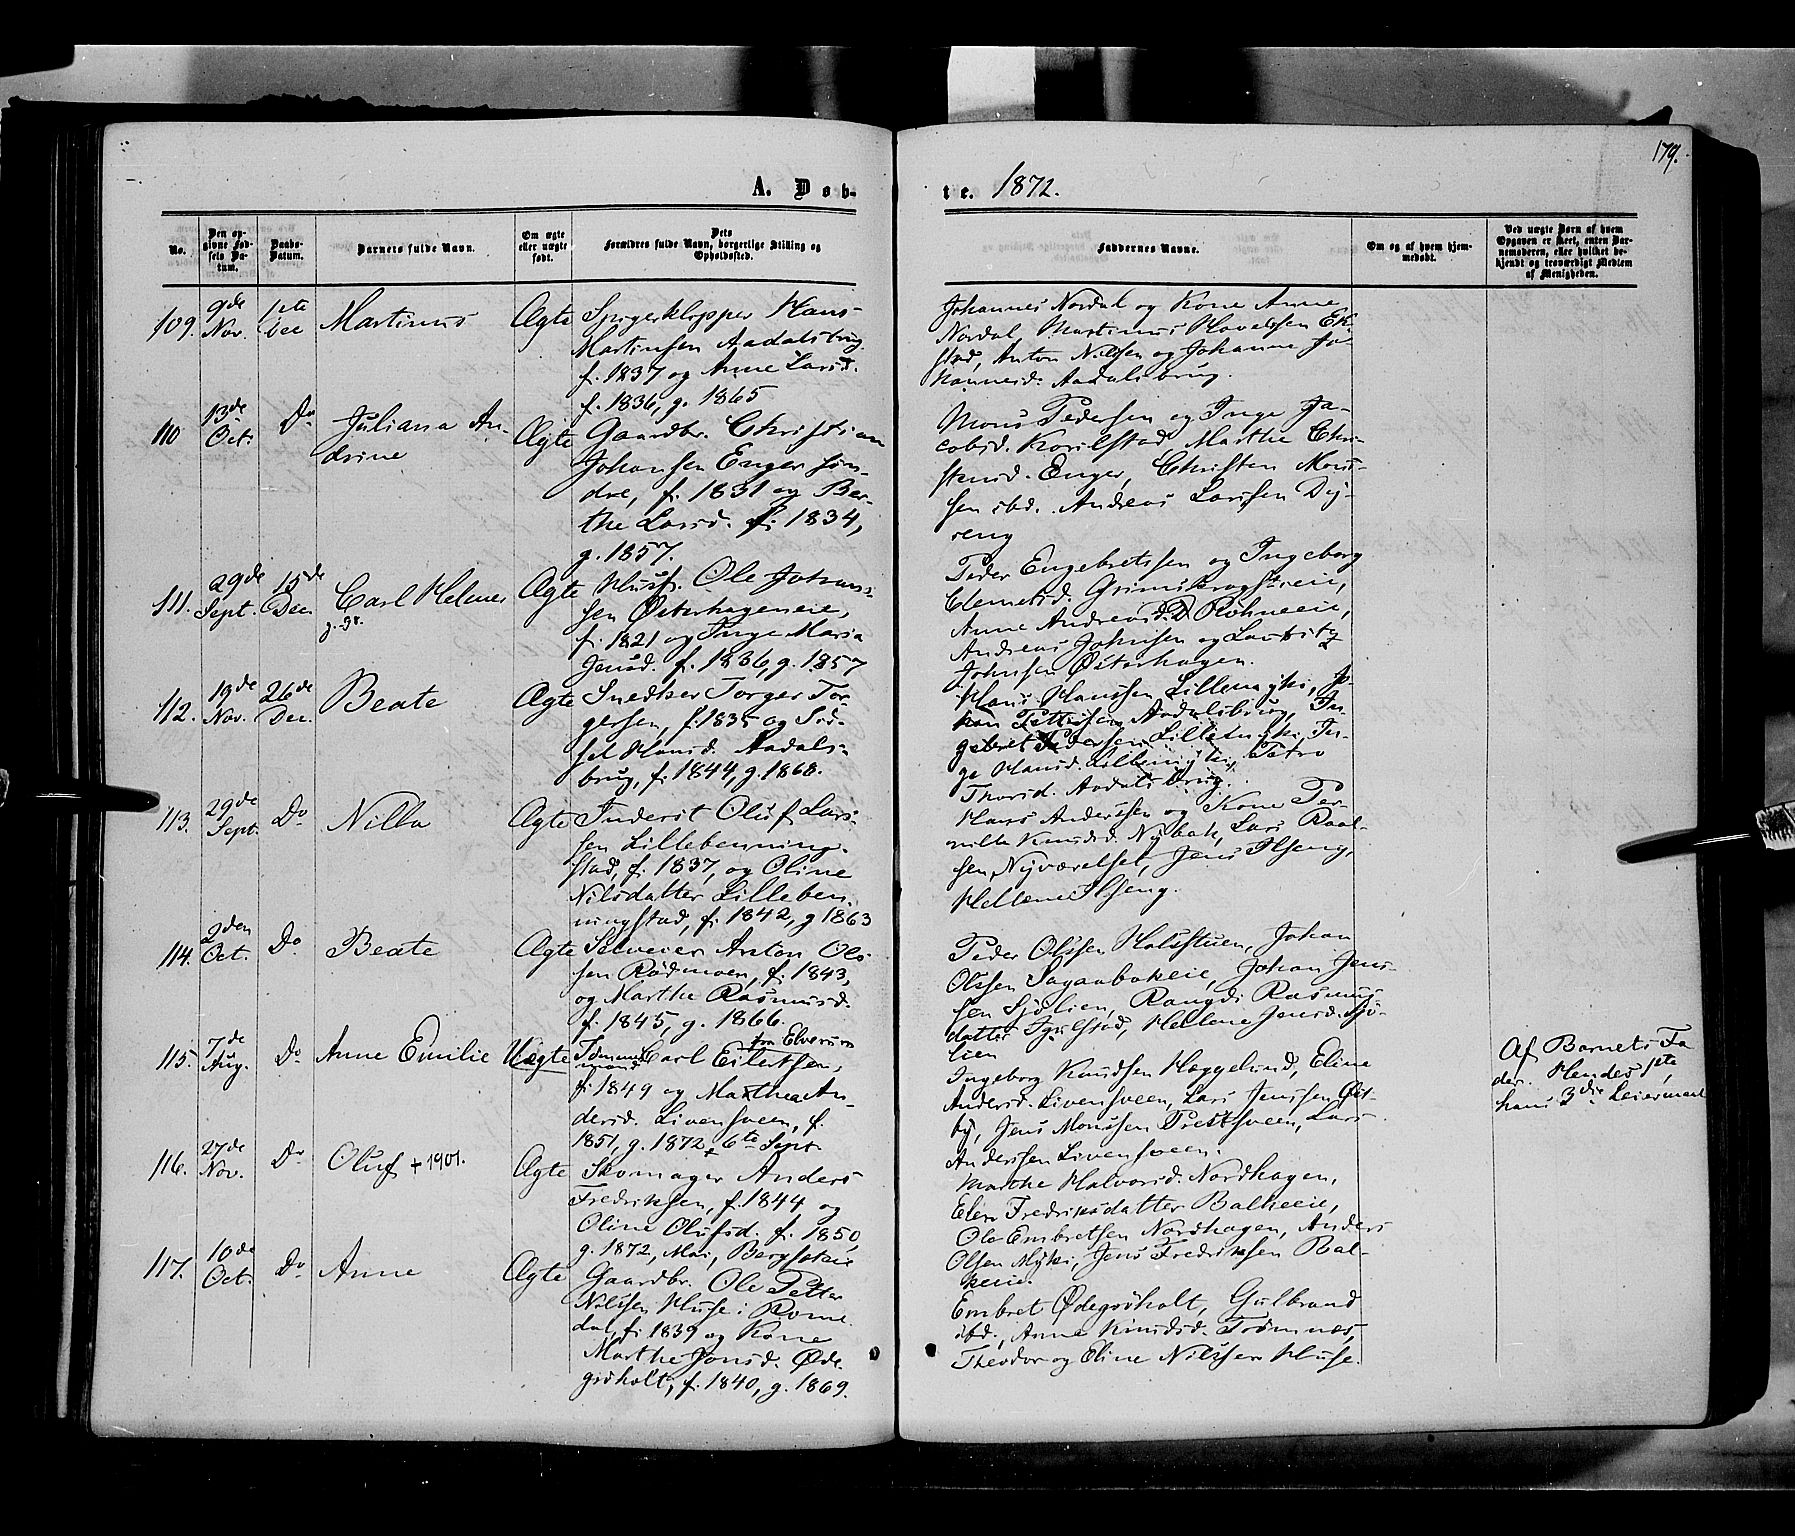 179.
A. Døb-
te. 1872.
No.
Den op-
givne Fød-
sels Da-
tum.
Daabs-
Datum.
Barnets fulde Navn.
Om ægte
eller uægte
født.
Dets
Forældres fulde Navn, borgerlige Stilling og
Opholdssted.
Faddernes Navne.
Om og af hvem hjem-
medøbt.
Ved uægte Børn af hvem
Opgaven er skeet, enten Bar-
nemoderen, eller hvilket be-
kjendt og troværdigt Medlem
af Menigheden.
109.
9de
Nov.
1ste
Dec
Martinus
Ægte
Spigerklipper Hans
Martinsen Aadalsbrug
f. 1837 og Anne Larsd.
f. 1836, g. 1865
Johannes Nordal og Kone Anne
Nordal, Martinus Havelsen Ek-
stad, Anton Nilssen og Johanne Jo-
hannesd. Aadalsbrug.
110
13de
Oct.
Do
Juliana An-
drine
Ægte
Gaardbr. Christian
Johansen Enger søn-
dre, f. 1831 og Ber-
the Larsd. f. 1834,
g. 1857.
Mons Pedersen og Inge Ja-
cobsd. Korilstad, Marthe Chri-
stensd. Enger, Christen Mons-
sen ibd. Andreas Larssen Dy-
reng
111.
29de
Sept.
15de
Dec.
Carl Helmer
Ægte
Husf. Ole Johans-
sen Østerhageneie,
f. 1821 og Inge Maria
Jensd. f. 1836, g. 1857
Peder Engebretssen og Ingeborg
Clemetsd. Grimskrogstreie,
Anne Andreasd. Røhneeie,
Andreas Johnsen og Lauritz
Johnsen Østerhagen.
112.
19de
Nov.
26de
Dec.
Beate
Ægte
Snedker Torger Tor-
gersen, f. 1835 og Sid-
sel Hansd. Aadals-
brug, f. 1844, g. 1868.
Hans Hanssen Lillemyhr, Jo-
han Pettersen Aadalsbrug, In-
gebret Pedersen Lillemyhr, In-
ge Hansd. Lillemyhr, Petra
Thorsd. Aadalsbrug.
113.
29de
Sept.
Do
Nilla
Ægte
Inderst Oluf Lars-
sen Lillebenning-
stad, f. 1837, og Oline
Nilsdatter Lilleben-
ningstad, f. 1842, g 1863
Hans Anderssen og Kone Per-
nille Knudsd. Nybak, Lars Paal-
sen Nyværelset, Jens Ilseng,
Hellene Ilseng.
114.
2den
Oct.
Do
Beate
Ægte
Selveier Anton Ols-
sen Rødmoen, f. 1843,
og Marthe Rasmusd.
f. 1845, g. 1866.
Peder Olssen Halsstuen, Johan
Olssen Sagaabakeie, Johan Jens-
sen Sjølien, Rangdi Rasmus-
datter Igelstad, Hellene Jensd. Sjø-
lien
115.
7de
Aug.
Do
Anne Emilie
Uægte
Tømmer-
mand Carl Eilertsen,
fra Elverum
f. 1849 og Mathea An-
dersd. Livensveen, f.
1851, g. 1872, 6te Sept.
Ingeborg Knudsen Hæggelund, Eline
Andersd. Livensveen, Lars Jenssen Øst-
by, Jens Monssen Prestsveen, Lars
Anderssen Livensveen.
Af Barnets Fa-
der. Hendes 1ste,
hans 3die Leiermaal
116.
27de
Nov.
Do
Oluf + 1901.
Ægte
Skomager Anders
Fredriksen, f. 1844 og
Oline Olufsd. f. 1850,
g. 1872, Mai, Bergsekeie
Marthe Halvorsd. Nordhagen,
Elen Fredriksdatter Balkeeie,
Ole Embretsen Nordhagen, Anders
Olsen Myhr, Jens Fredriksen Bal-
keeie.
117.
10de
Oct.
Do
Anne
Ægte
Gaardbr. Ole Petter
Nilssen Huse i Rome-
dal, f. 1839 og Kone
Marthe Jonsd. Øde-
grøholt, f. 1840, g. 1869.
Embret Ødegrøholt, Gulbrand
ibd., Anne Knudsd. Tømnæs,
Theodor og Eline Nilssen Huse.